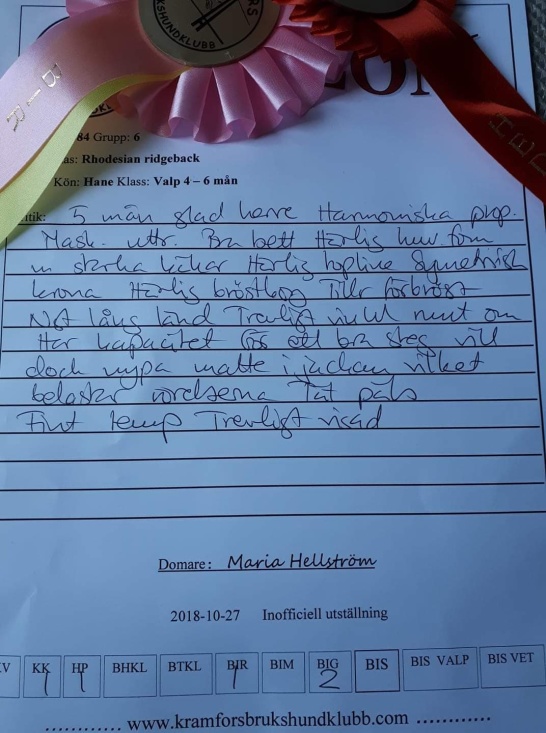 BRUKSHUNDKLUBB
BIR
84 Grupp: 6
Rhodesian ridgeback
Kön: Hane Klass: Valp 4 – 6 mån
5 mån glad herre Harmoniska prop.
Mask. uttr. Bra bett Härlig huv. form
m starka käkar Härlig topline Symetrisk
krona Härlig bröstkorg Tillr förbröst
Ngt lång länd Trevligt vinkl runt om
Har kapacitet för ett bra steg vill
dock nypa matte i jackan vilket
belastar rörelserna Tät päls
Fint temp Trevligt visad
Domare: Maria Hellström
2018-10-27 Inofficiell utställning
KK 1 HP 1 BHKL BTKL BIR 1 BIM BIG 2 BIS BIS VALP BIS VET
............ www.kramforsbrukshundklubb.com ............